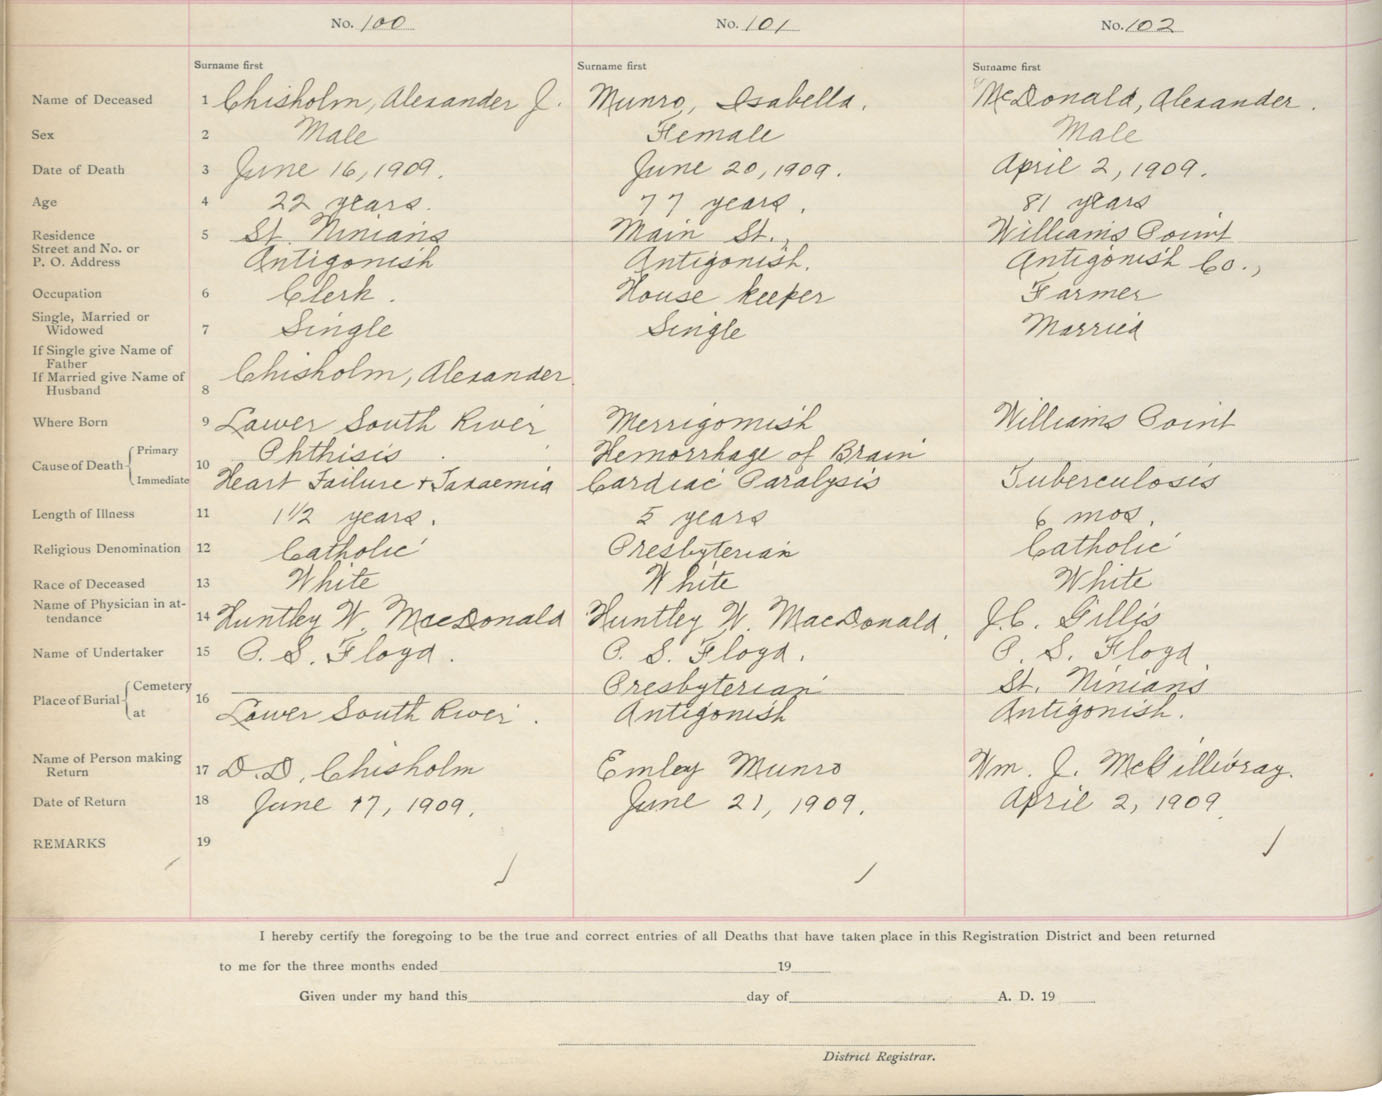 No. 100 No. 101 No. 102
Surname first Surname first Surname first
Name of Deceased 1 Chisholm, Alexander J. Munro, Isabella. McDonald, Alexander.
Sex 2 Male Female Male
Date of Death 3 June 16, 1909. June 20, 1909. April 2, 1909.
Age 4 22 years. 77 years. 81 years
Residence 5 St. Ninians Main St., Williams Point
Street and No. or
P. O. Address Antigonish Antigonish. Antigonish Co.,
Occupation 6 Clerk. House keeper Farmer
Single, Married or
Widowed 7 Single Single Married
If Single give Name of
Father
If Married give Name of
Husband 8 Chisholm, Alexander
Where Born 9 Lower South River Merrigomish Williams Point
Cause of Death 10 Primary Phthisis Hemorrhage of Brain
Immediate Heart Failure + Toxaemia Cardiac Paralysis Tuberculosis
Length of Illness 11 1 1/2 years. 5 years 6 mos.
Religious Denomination 12 Catholic Presbyterian Catholic
Race of Deceased 13 White White White
Name of Physician in at-
tendance 14 Huntley W. MacDonald Huntley W. MacDonald. J.C. Gillis
Name of Undertaker 15 P. S. Floyd. P. S. Floyd. P. S. Floyd
Place of Burial 16 Cemetery Presbyterian St. Ninians
at Lower South River. Antigonish Antigonish.
Name of Person making
Return 17 D. D. Chisholm Emley Munro Wm. J. McGillivray.
Date of Return 18 June 17, 1909. June 21, 1909. April 2, 1909.
REMARKS 19
I hereby certify the foregoing to be the true and correct entries of all Deaths that have taken place in this Registration District and been returned
to me for the three months ended 19
Given under my hand this day of A. D. 19
District Registrar.